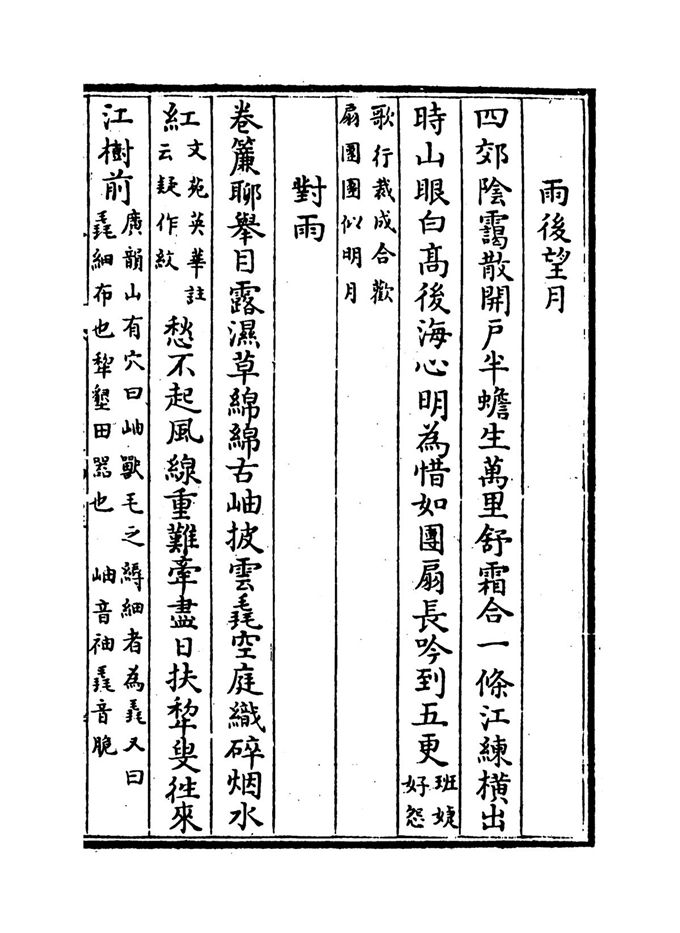 雨後望月
四郊陰靄散開戶半蟾生萬里舒霜合一條江練橫出
時山眼白高後海心明為惜如團扇長吟到五更班婕
妤怨
歌行裁成合歡
扇團團似明月
對雨
卷簾聊舉目露濕草綿綿古岫披雲毳空庭織碎烟水
紅文苑英華註
云疑作紋
愁不起風線重難牽盡日扶犂叟往來
江樹前廣韻山有穴曰岫獸毛之縟細者為毳又曰
毳細布也犂墾田器也　岫音袖毳音脆